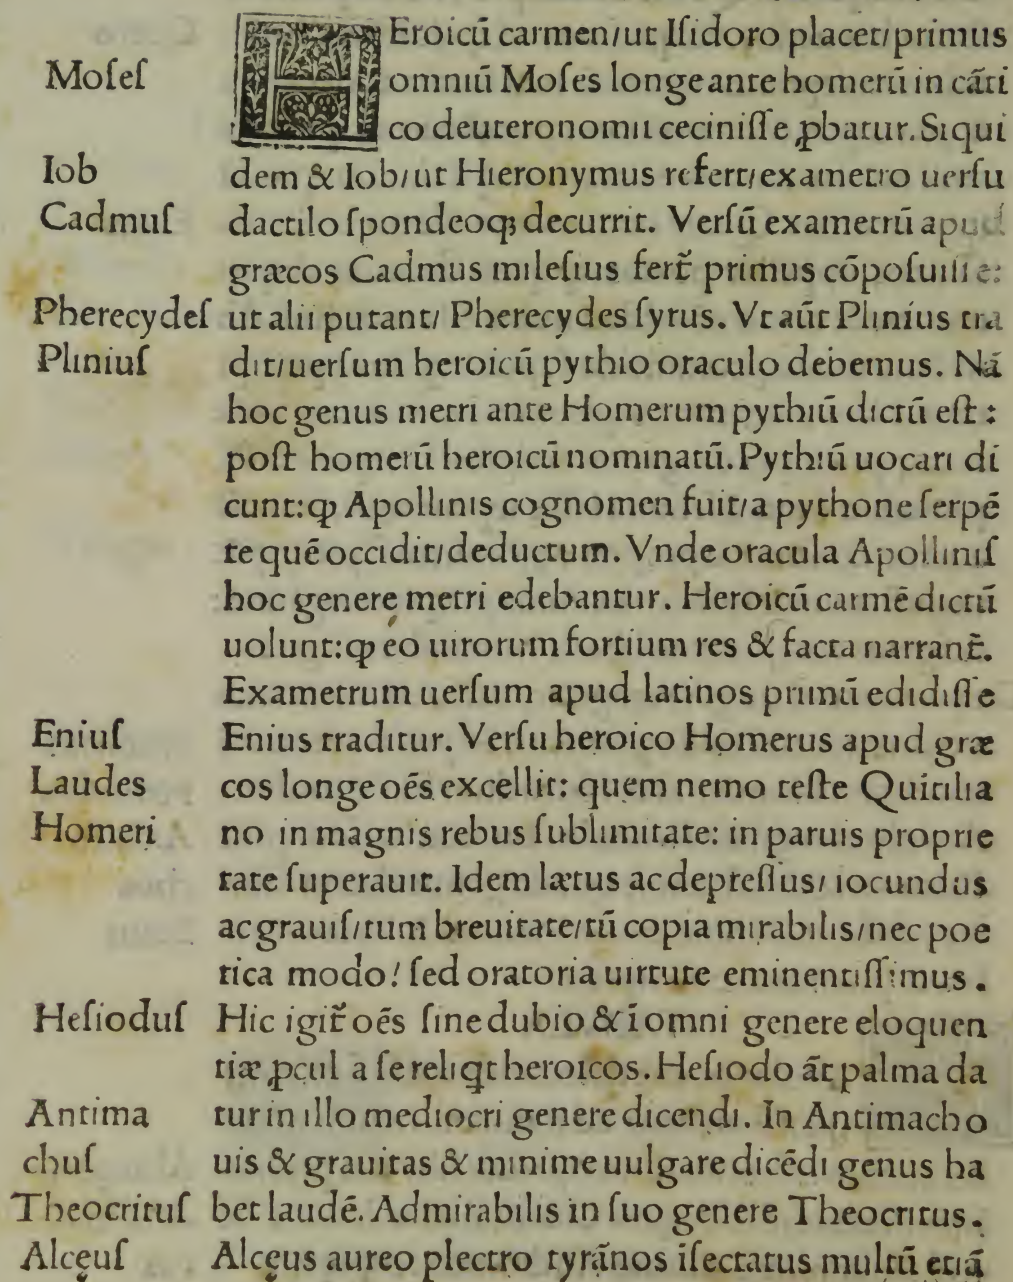 HEroicū carmen/ut Iſidoro placet/primus
Moſeſ omniū Moſes longe ante homerū in cāti
co deuteronomii ceciniſſe ꝓbatur. Siqui
Iob dem & Iob/ut Hieronymus refert/exametro uerſu
Cadmuſ dactilo ſpondeoqꝫ decurrit. Verſū exametrū apud
græcos Cadmus mileſius fert̄ primus cōpoſuiſſe:
Pherecydeſ ut alii putant/ Pherecydes ſyrus. Vt aūt Plinius tra
Pliniuſ dit/uerſum heroicū pythio oraculo debemus. Nā
hoc genus metri ante Homerum pythiū dictū eſt:
poſt homerū heroicū nominatū. Pythiū uocari di
cunt:ꝙ Apollinis cognomen fuit/a pythone ſerpē
te quē occidit/deductum. Vnde oracula Apolliniſ
hoc genere metri edebantur. Heroicū carmē dictū
uolunt:ꝙ eo uirorum fortium res & facta narrant̄.
Exametrum uerſum apud latinos primū edidiſſe
Eniuſ Enius traditur. Verſu heroico Homerus apud græ
Laudes cos longe oēs excellit: quem nemo teſte Quītilia
Homeri no in magnis rebus ſublimitate: in paruis proprie
tate ſuperauit. Idem lætus ac depreſſus/ iocundus
ac grauiſ/tum breuitate/tū copia mirabilis/nec poe
tica modo/ ſed oratoria uirtute eminentiſſimus.
Heſioduſ Hic igit̄ oēs ſine dubio & ī omni genere eloquen
tiæ ꝓcul a ſe reliqt heroicos. Heſiodo āt palma da
Antima tur in illo mediocri genere dicendi. In Antimacho
chuſ uis & grauitas & minime uulgare dicēdi genus ha
Theocrituſ bet laudē. Admirabilis in ſuo genere Theocritus.
Alcęuſ Alcęus aureo plectro tyrānos iſectatus multū etiā